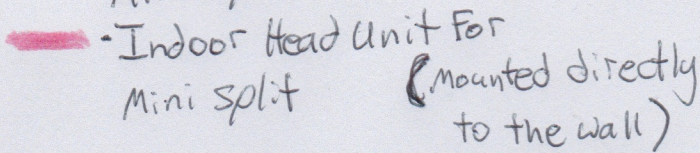 - Indoor Head Unit For
Mini split
(Mounted directly
to the wall)